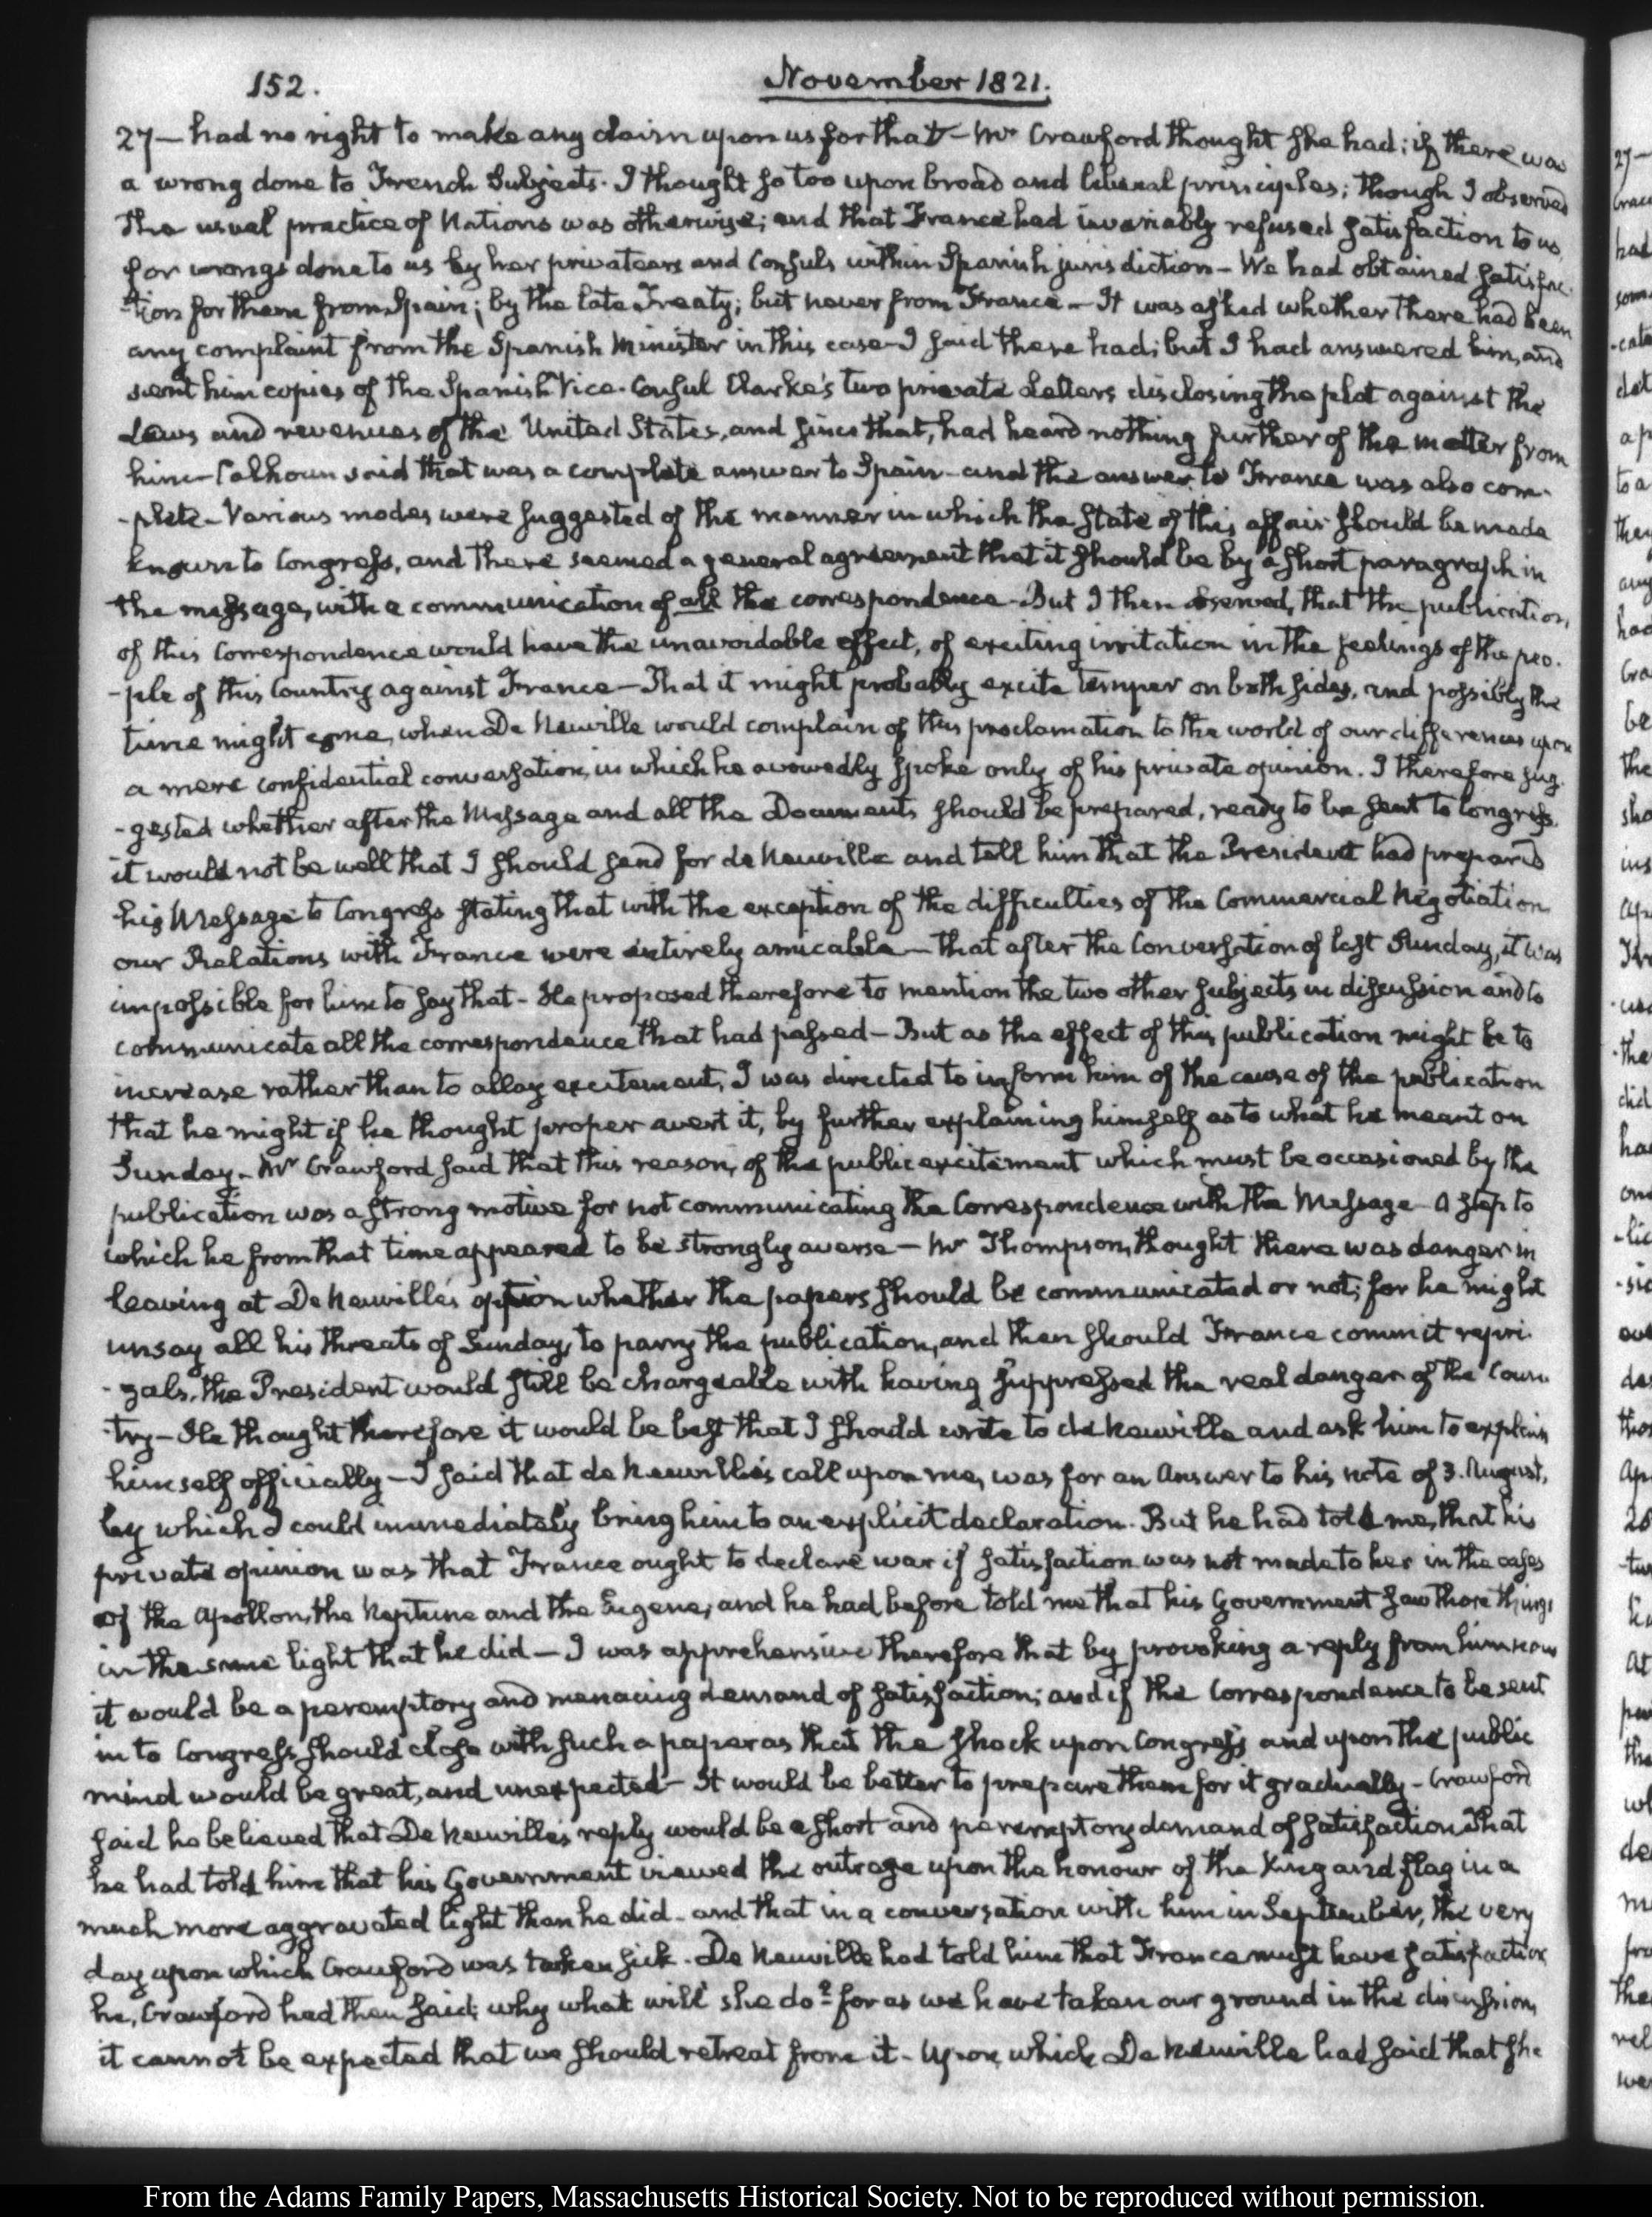 152.
November 1821.
27 — had no right to make any claim upon us for that — Mr Crawford thought she had; if there was
a wrong done to French Subjects. I thought so too upon broad and liberal principles; though I observed
the usual practice of Nations was otherwise; and that France had invariably refused satisfaction to us,
for wrongs done to us by her privateers and Consuls within Spanish jurisdiction — We had obtained satisfac-
-tion for them from Spain; by the late Treaty; but never from France — It was asked whether there had been
any complaint from the Spanish Minister in this case — I said there had; but I had answered him, and
sent him copies of the Spanish Vice-Consul Clarke's two private Letters disclosing the plot against the
Laws and revenues of the United States, and since that, had heard nothing further of the matter from
him — Calhoun said that was a complete answer to Spain — and the answer to France was also com-
-plete — Various modes were suggested of the manner in which the state of this affair should be made
known to Congress, and there seemed a general agreement that it should be by a short paragraph in
the message, with a communication of all the correspondence — But I then observed, that the publication,
of this Correspondence would have the unavoidable effect, of exciting irritation in the feelings of the peo-
-ple of this Country against France — That it might probably excite temper on both sides, and possibly the
time might come, when De Neuville would complain of this proclamation to the world of our differences upon
a mere confidential conversation, in which he avowedly spoke only of his private opinion. I therefore sug-
-gested whether after the Message and all the Documents should be prepared, ready to be sent to Congress,
it would not be well that I should send for de Neuville and tell him that the President had prepared
his Message to Congress stating that with the exception of the difficulties of the Commercial Negotiation
our Relations with France were entirely amicable — that after the Conversation of last Sunday, it was
impossible for him to say that — He proposed therefore to mention the two other subjects in discussion and to
communicate all the correspondence that had passed — But as the effect of this publication might be to
increase rather than to allay excitement, I was directed to inform him of the cause of the publication
that he might if he thought proper avert it, by further explaining himself as to what he meant on
Sunday — Mr Crawford said that this reason, of the public excitement which must be occasioned by the
publication was a strong motive for not communicating the Correspondence with the Message — A step to
which he from that time appeared to be strongly averse — Mr Thompson, thought there was danger in
leaving at De Neuville's option whether the papers should be communicated or not; for he might
unsay all his threats of Sunday, to parry the publication, and then should France commit repri-
-zals, the President would still be chargeable with having suppressed the real danger of the Coun-
-try — He thought therefore it would be best that I should write to de Neuville and ask him to explain
himself officially — I said that de Neuville's call upon me, was for an Answer to his note of 3. August,
by which I could immediately bring him to an explicit declaration. But he had told me, that his
private opinion was that France ought to declare war if satisfaction was not made to her in the cases
of the Apollon, the Neptune and the Eugene, and he had before told me that his Government saw those things
in the same light that he did — I was apprehensive therefore that by provoking a reply from him now
it would be a peremptory and menacing demand of satisfaction; and if the Correspondence to be sent
in to Congress should close with such a paper as that the shock upon Congress and upon the public
mind would be great, and unexpected — It would be better to prepare them for it gradually — Crawford
said he believed that De Neuville's reply would be a short and peremptory demand of satisfaction That
he had told him that his Government viewed the outrage upon the honour of the King and flag in a
much more aggravated light than he did — and that in a conversation with him in September, the very
day upon which Crawford was taken sick. De Neuville had told him that France must have satisfaction
he, Crawford had then said; why what will she do? for as we have taken our ground in the discussion,
it cannot be expected that we should retreat from it — Upon which De Neuville had said that she
From the Adams Family Papers, Massachusetts Historical Society. Not to be reproduced without permission.